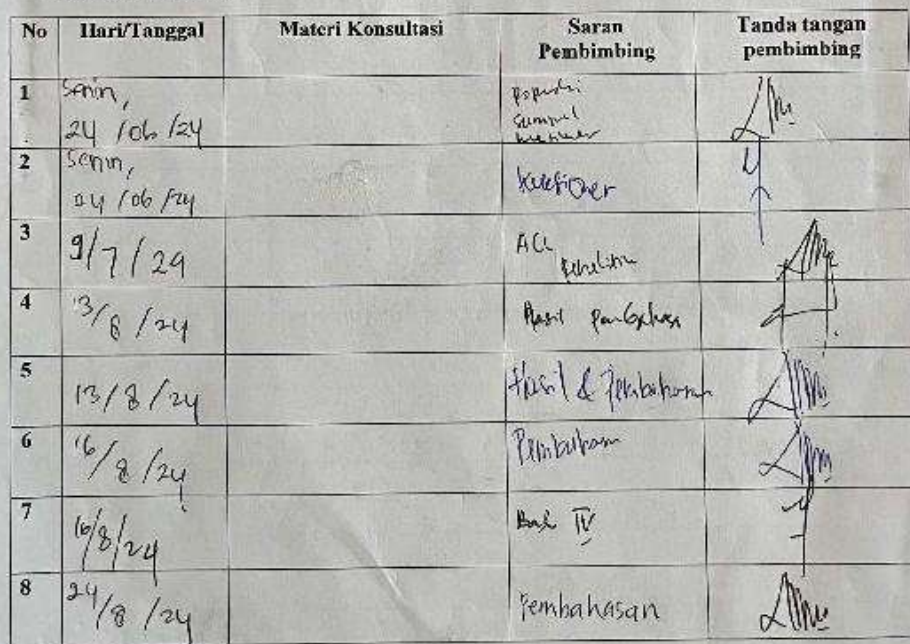 No Hari/Tanggal Materi Konsultasi Saran Pembimbing Tanda tangan pembimbing
1 Senin, 24/06/24
2 Senin, 24/06/24 Kuesioner
3 9/7/24 Acc
4 13/8/24 Hasil
5 13/8/24 Hasil & Pembahasan
6 16/8/24 Pembahasan
7 16/8/24 Bab IV
8 24/8/24 Pembahasan